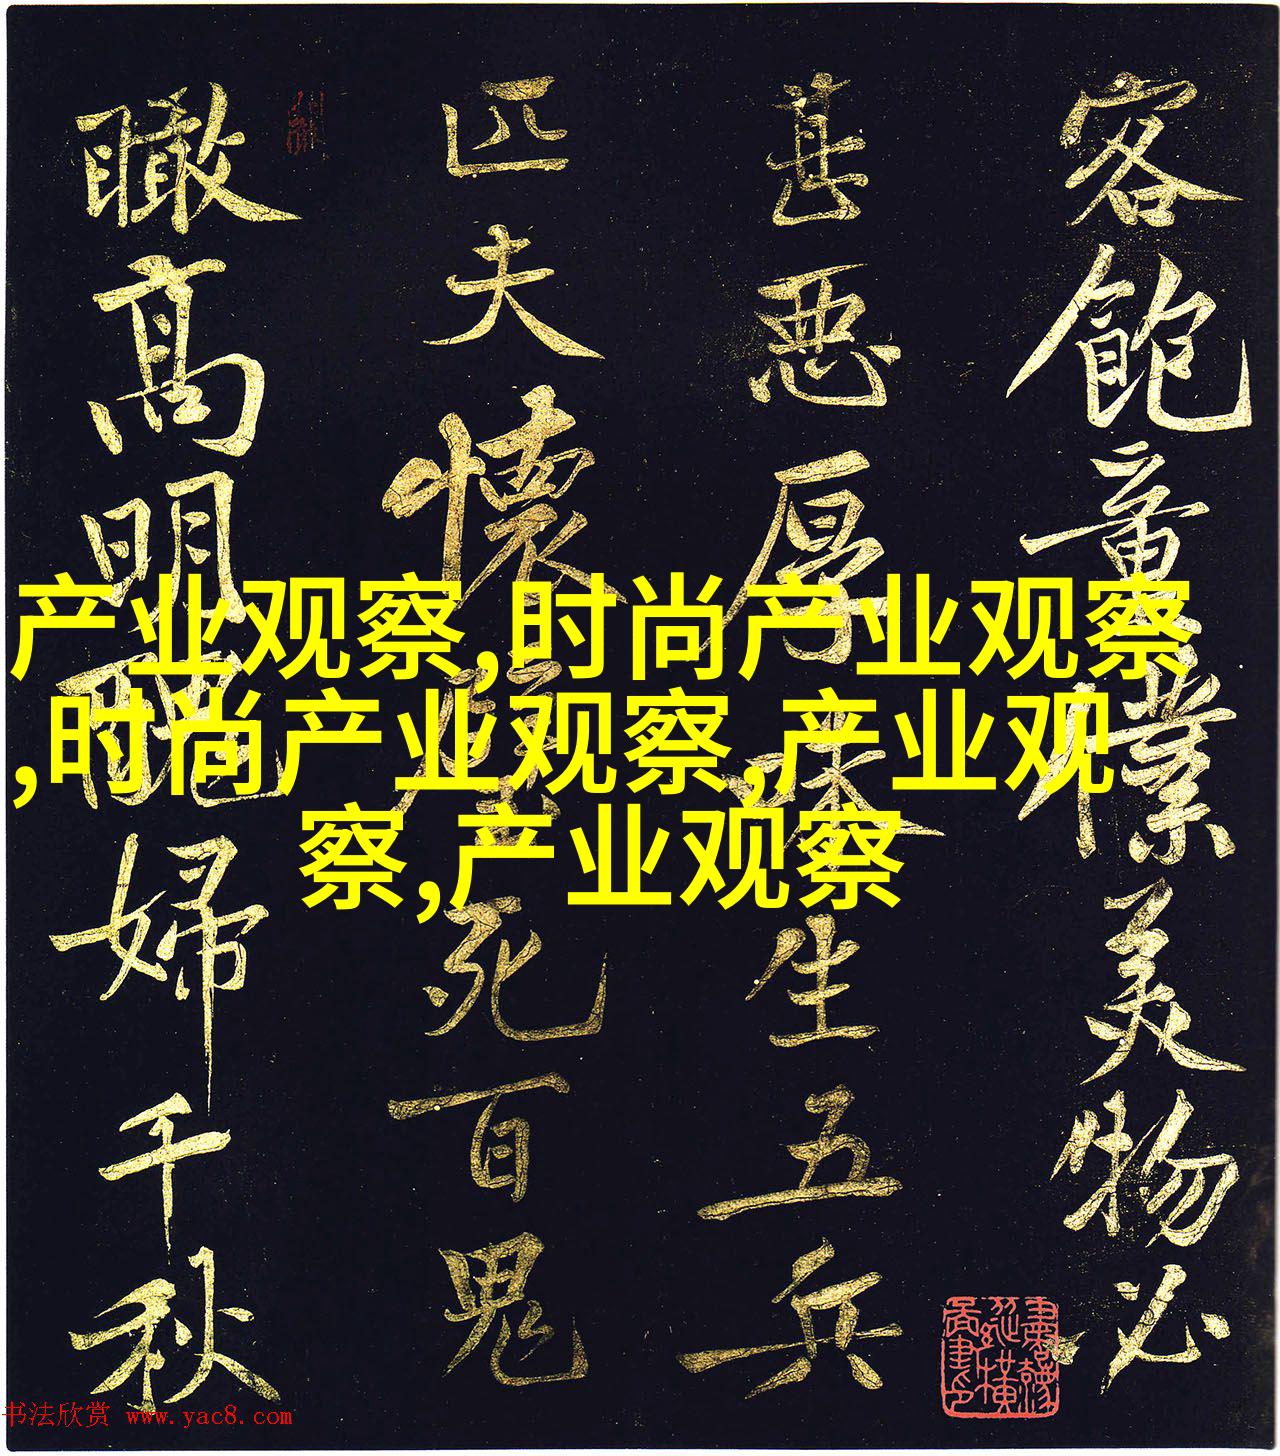 客飽童僕美物必
甚惡厚味生五兵
匹夫懷璧死百鬼
瞰高明醜婦千秋
产业观察,时尚产业观察
,时尚产业观察,产业观
察,产业观察
书法欣赏 www.yac8.com